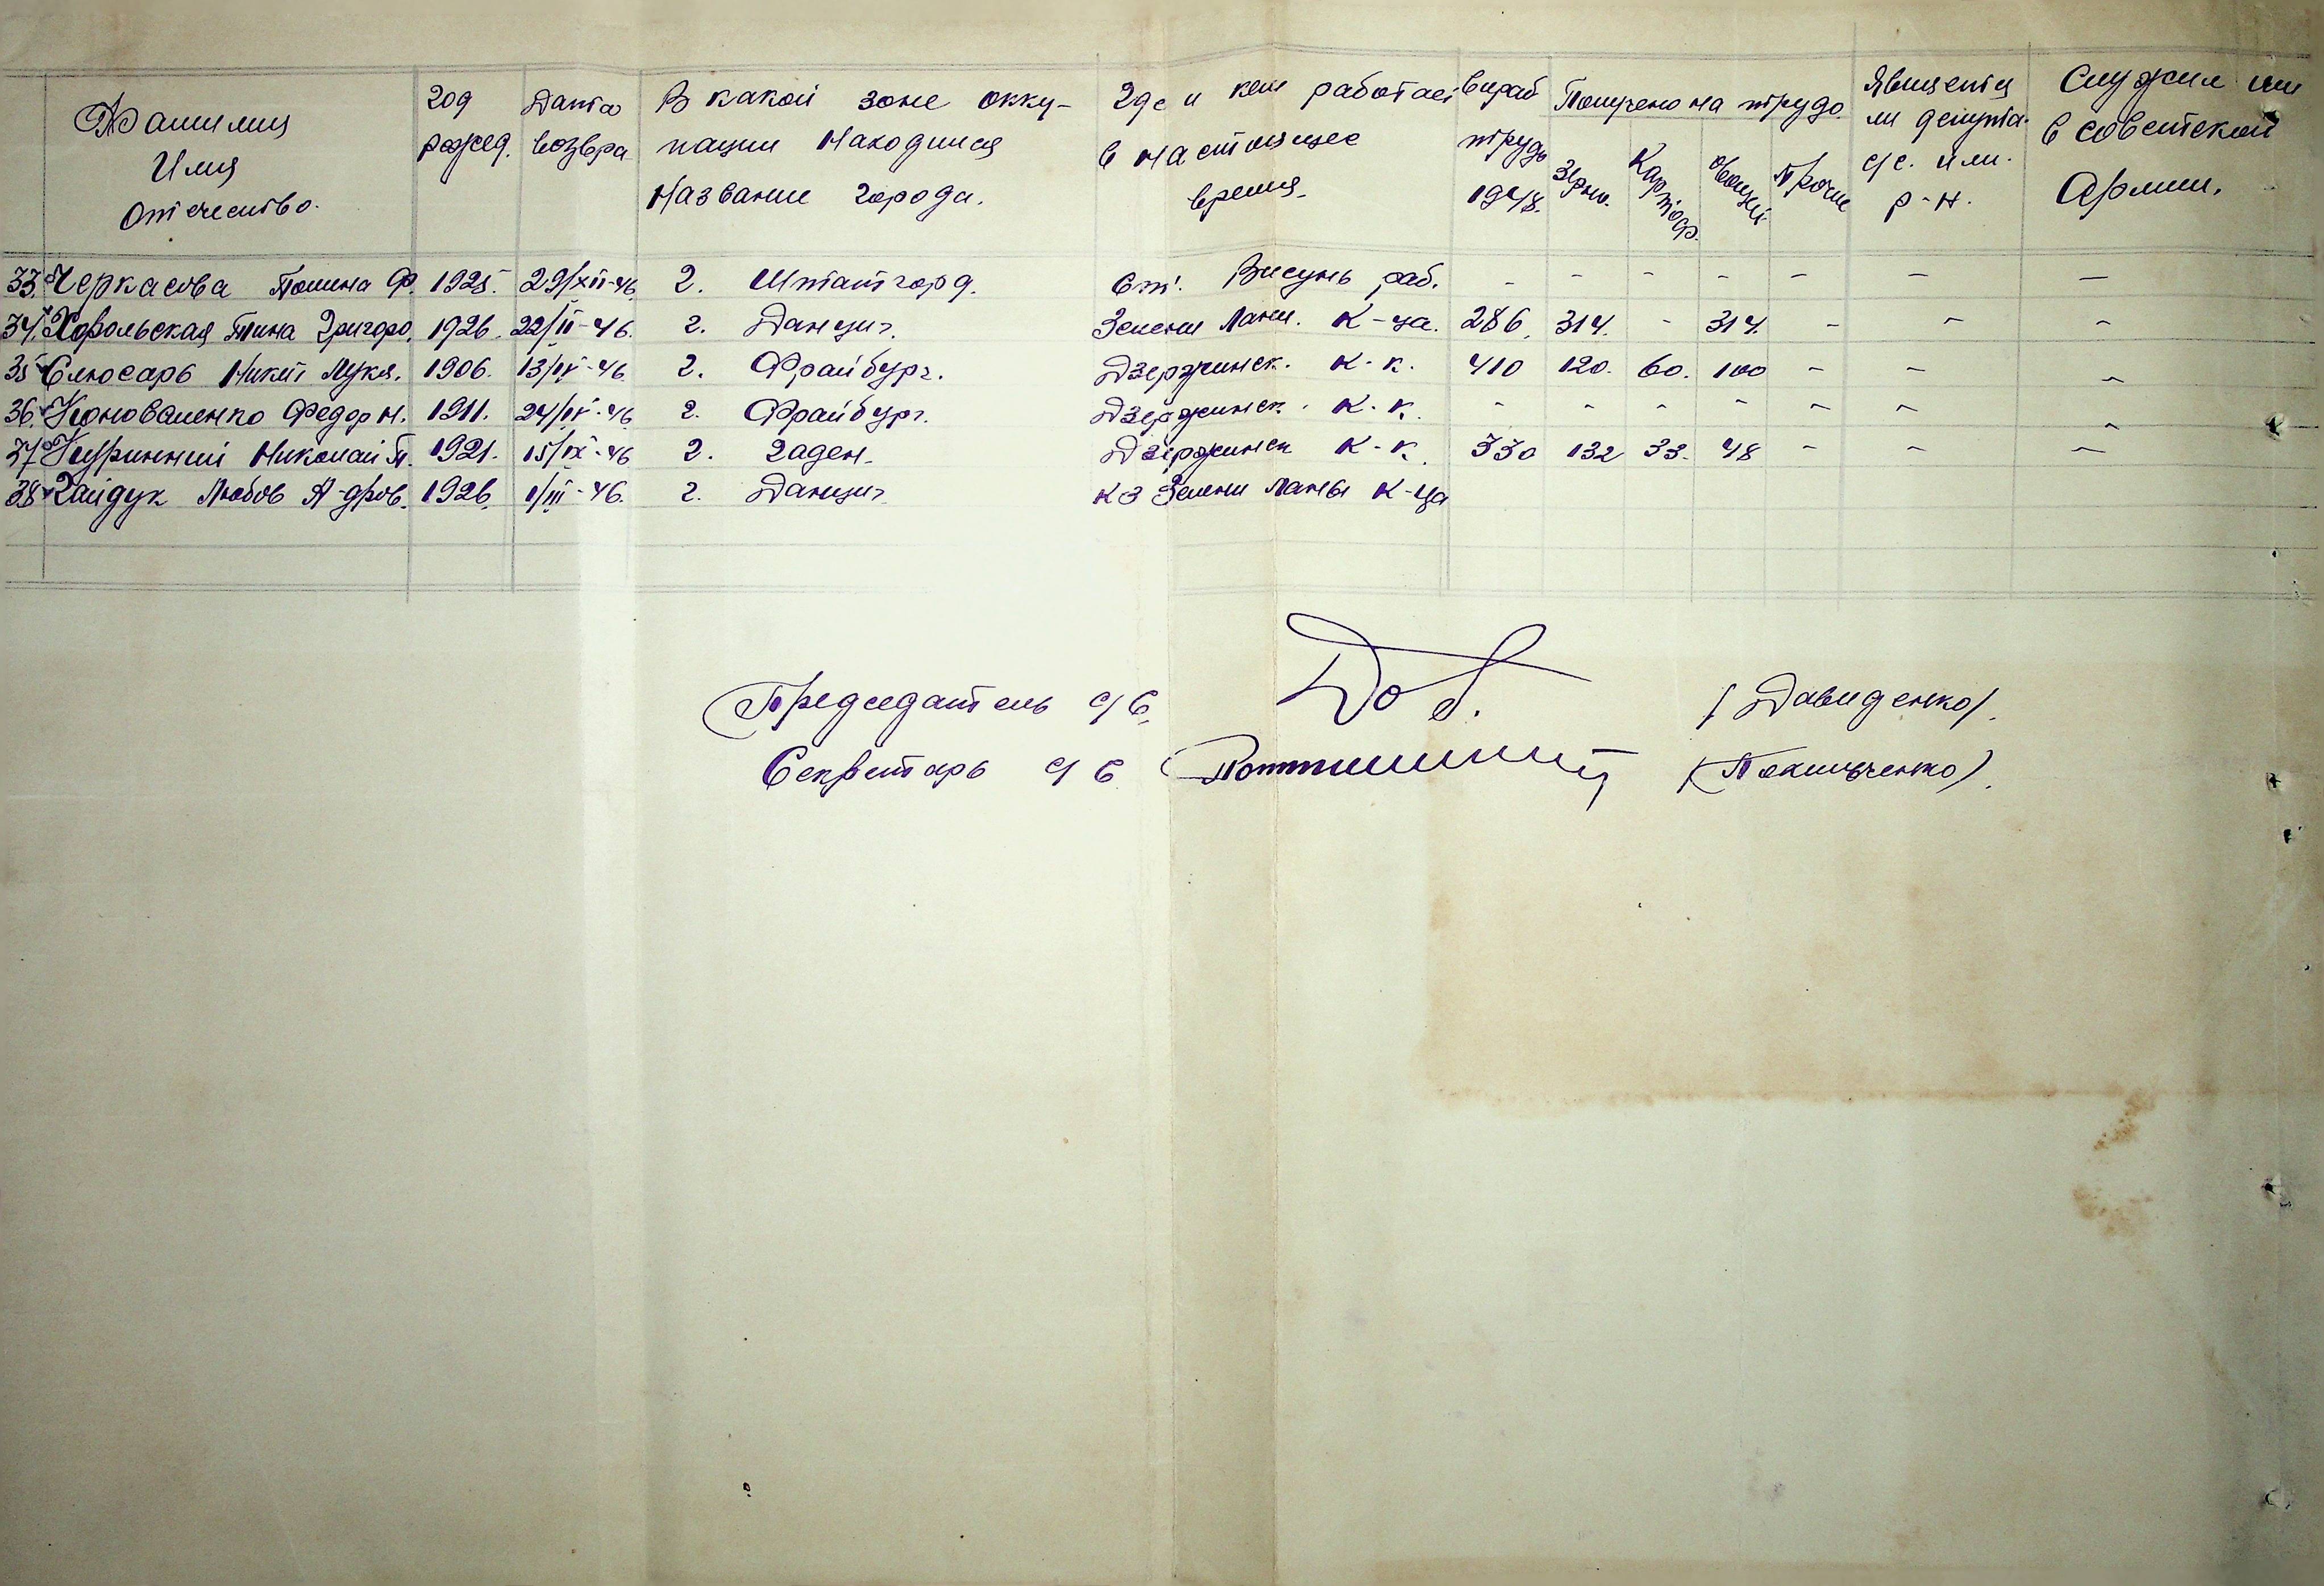 Фамилия Имя Отчество. год рожед. Дата возвра В какой зоне окку-пации Находился Название города. Где и кем работает в настоящее время. Вираб трудо 1948. Получено на трудо. Зерно. Картоф. Овощи Прочие Является ли депута. с/с. или. р-н. Служил ли в советской Армии.
33. Черкасова Полина Ф. 1925. 29/XII-46. г. Штатгорд. Ст. Висунь раб. - - - - - - -
34. Хорольская Тина Григоро. 1926. 22/II-46. г. Данциг. Зелени Лани. К-ца. 286. 314. - 314. - - -
35 Слюсарь Никит Лукя. 1906. 13/IV-46. г. Фрайбург. Дзержинск. К-к. 410 120. 60. 100 - - -
36. Коноваленко Федор Н. 1911. 24/IV-46. г. Фрайбург. Дзержинск. К-к. - - - - - - -
37 Куринний Николай П. 1921. 15/IX-46 г. Гаден. Дзержинск К-к. 330 132 33. 48 - - -
38 Гайдук Любов А-дров. 1926. 1/III-46. г. Данциг КЗ Зелени Ланы К-ца
Председатель с/с. Дав. /Давиденко/.
Секретарь с/с (Покильченко).